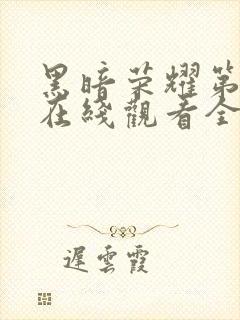 黑暗荣耀第
在綫觀看全
遲雲霞